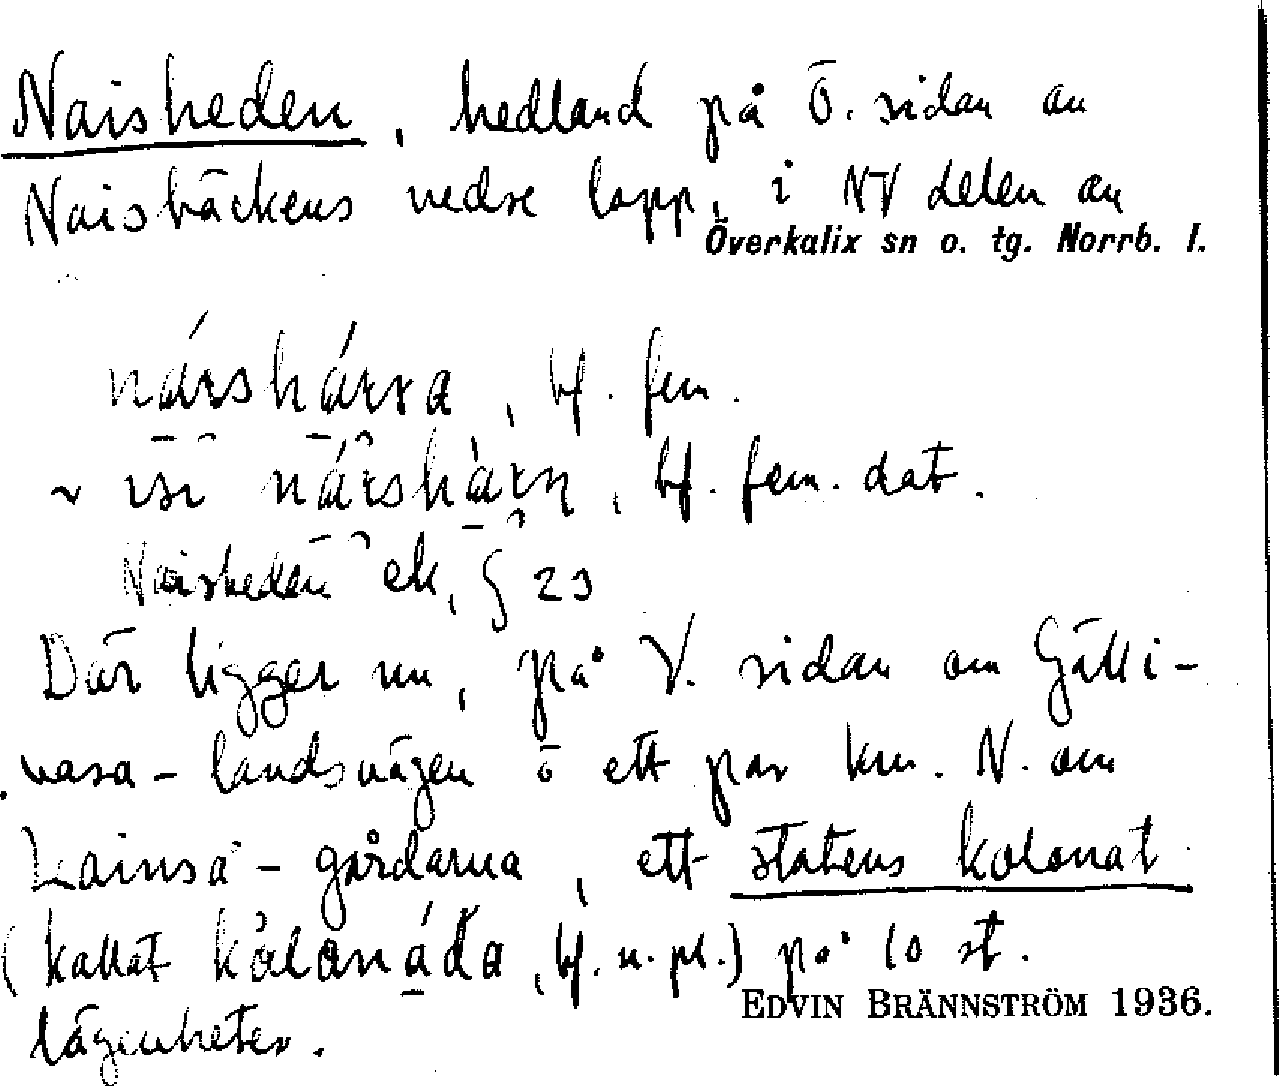 Naisheden, hedland på Ö. sidan av
Naisbäckens nedre lopp, i NV delen av
Överkalix sn o. tg. Norrb. l.
bf. fem.
bf. fem. dat.
Naisheden ek, § 23
Där ligger nu, på V. sidan om Gälli-
vara-landsvägen o ett par km. N. om
Lainså-gårdarna, ett statens kolonat
(kallat bf. n. pl.) på 10 st.
EDVIN BRÄNNSTRÖM 1936.
lägenheter.